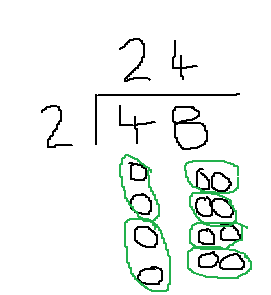 24
2 48